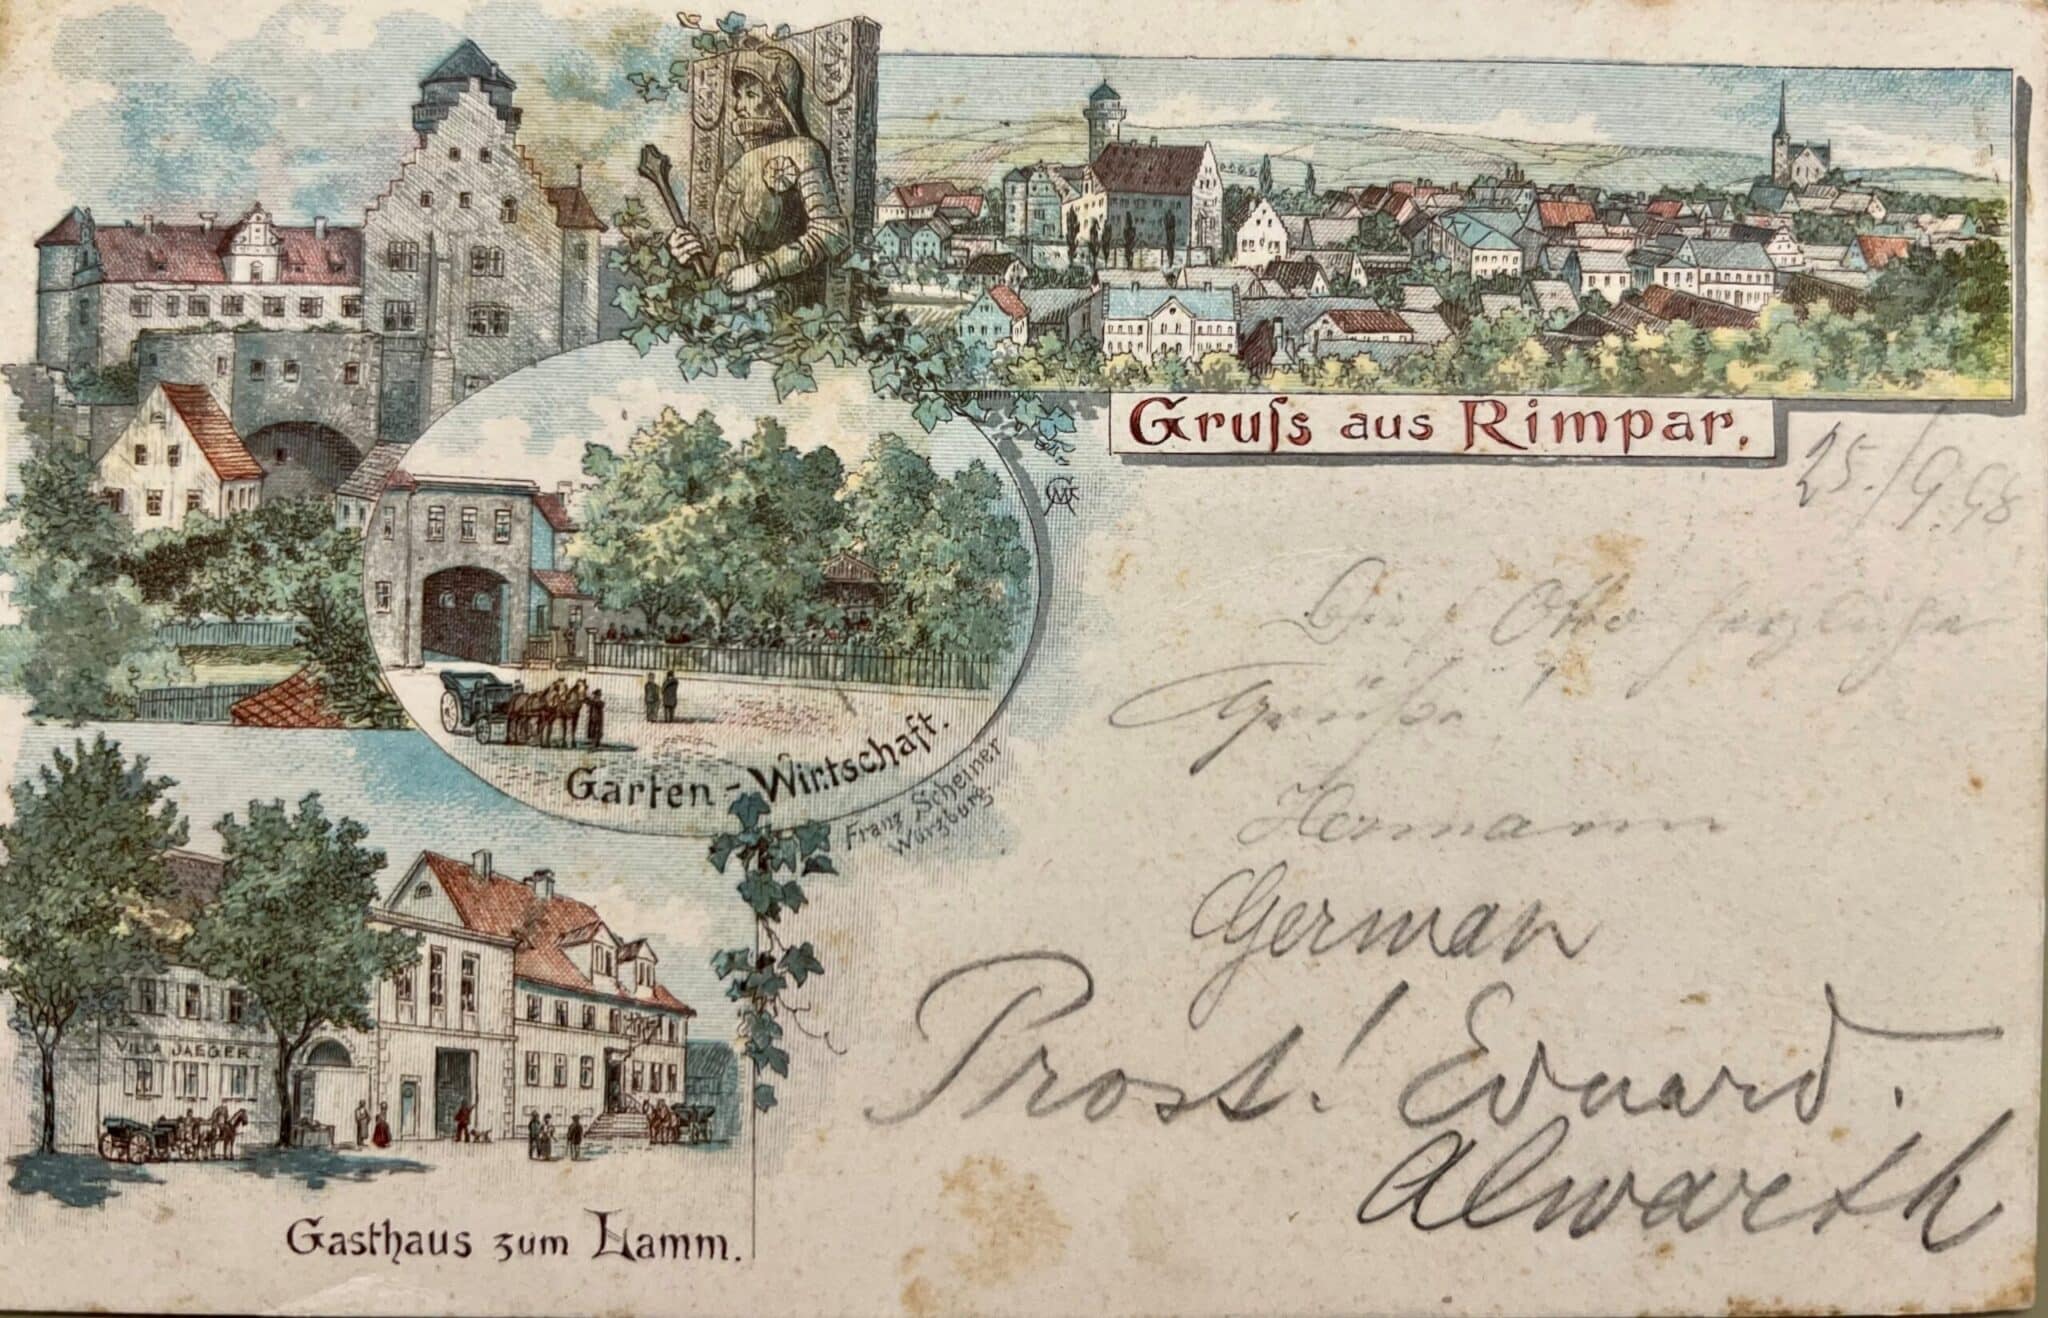 Gruſs aus Rimpar.
25./9.98
Dir, Otto herzliche
Grüße!
Hermann
German
Prost! Eduard.
Alwarth
Garten-Wirtschaft.
Franz Scheiner
Würzburg.
VILLA JAEGER
Gasthaus zum Lamm.